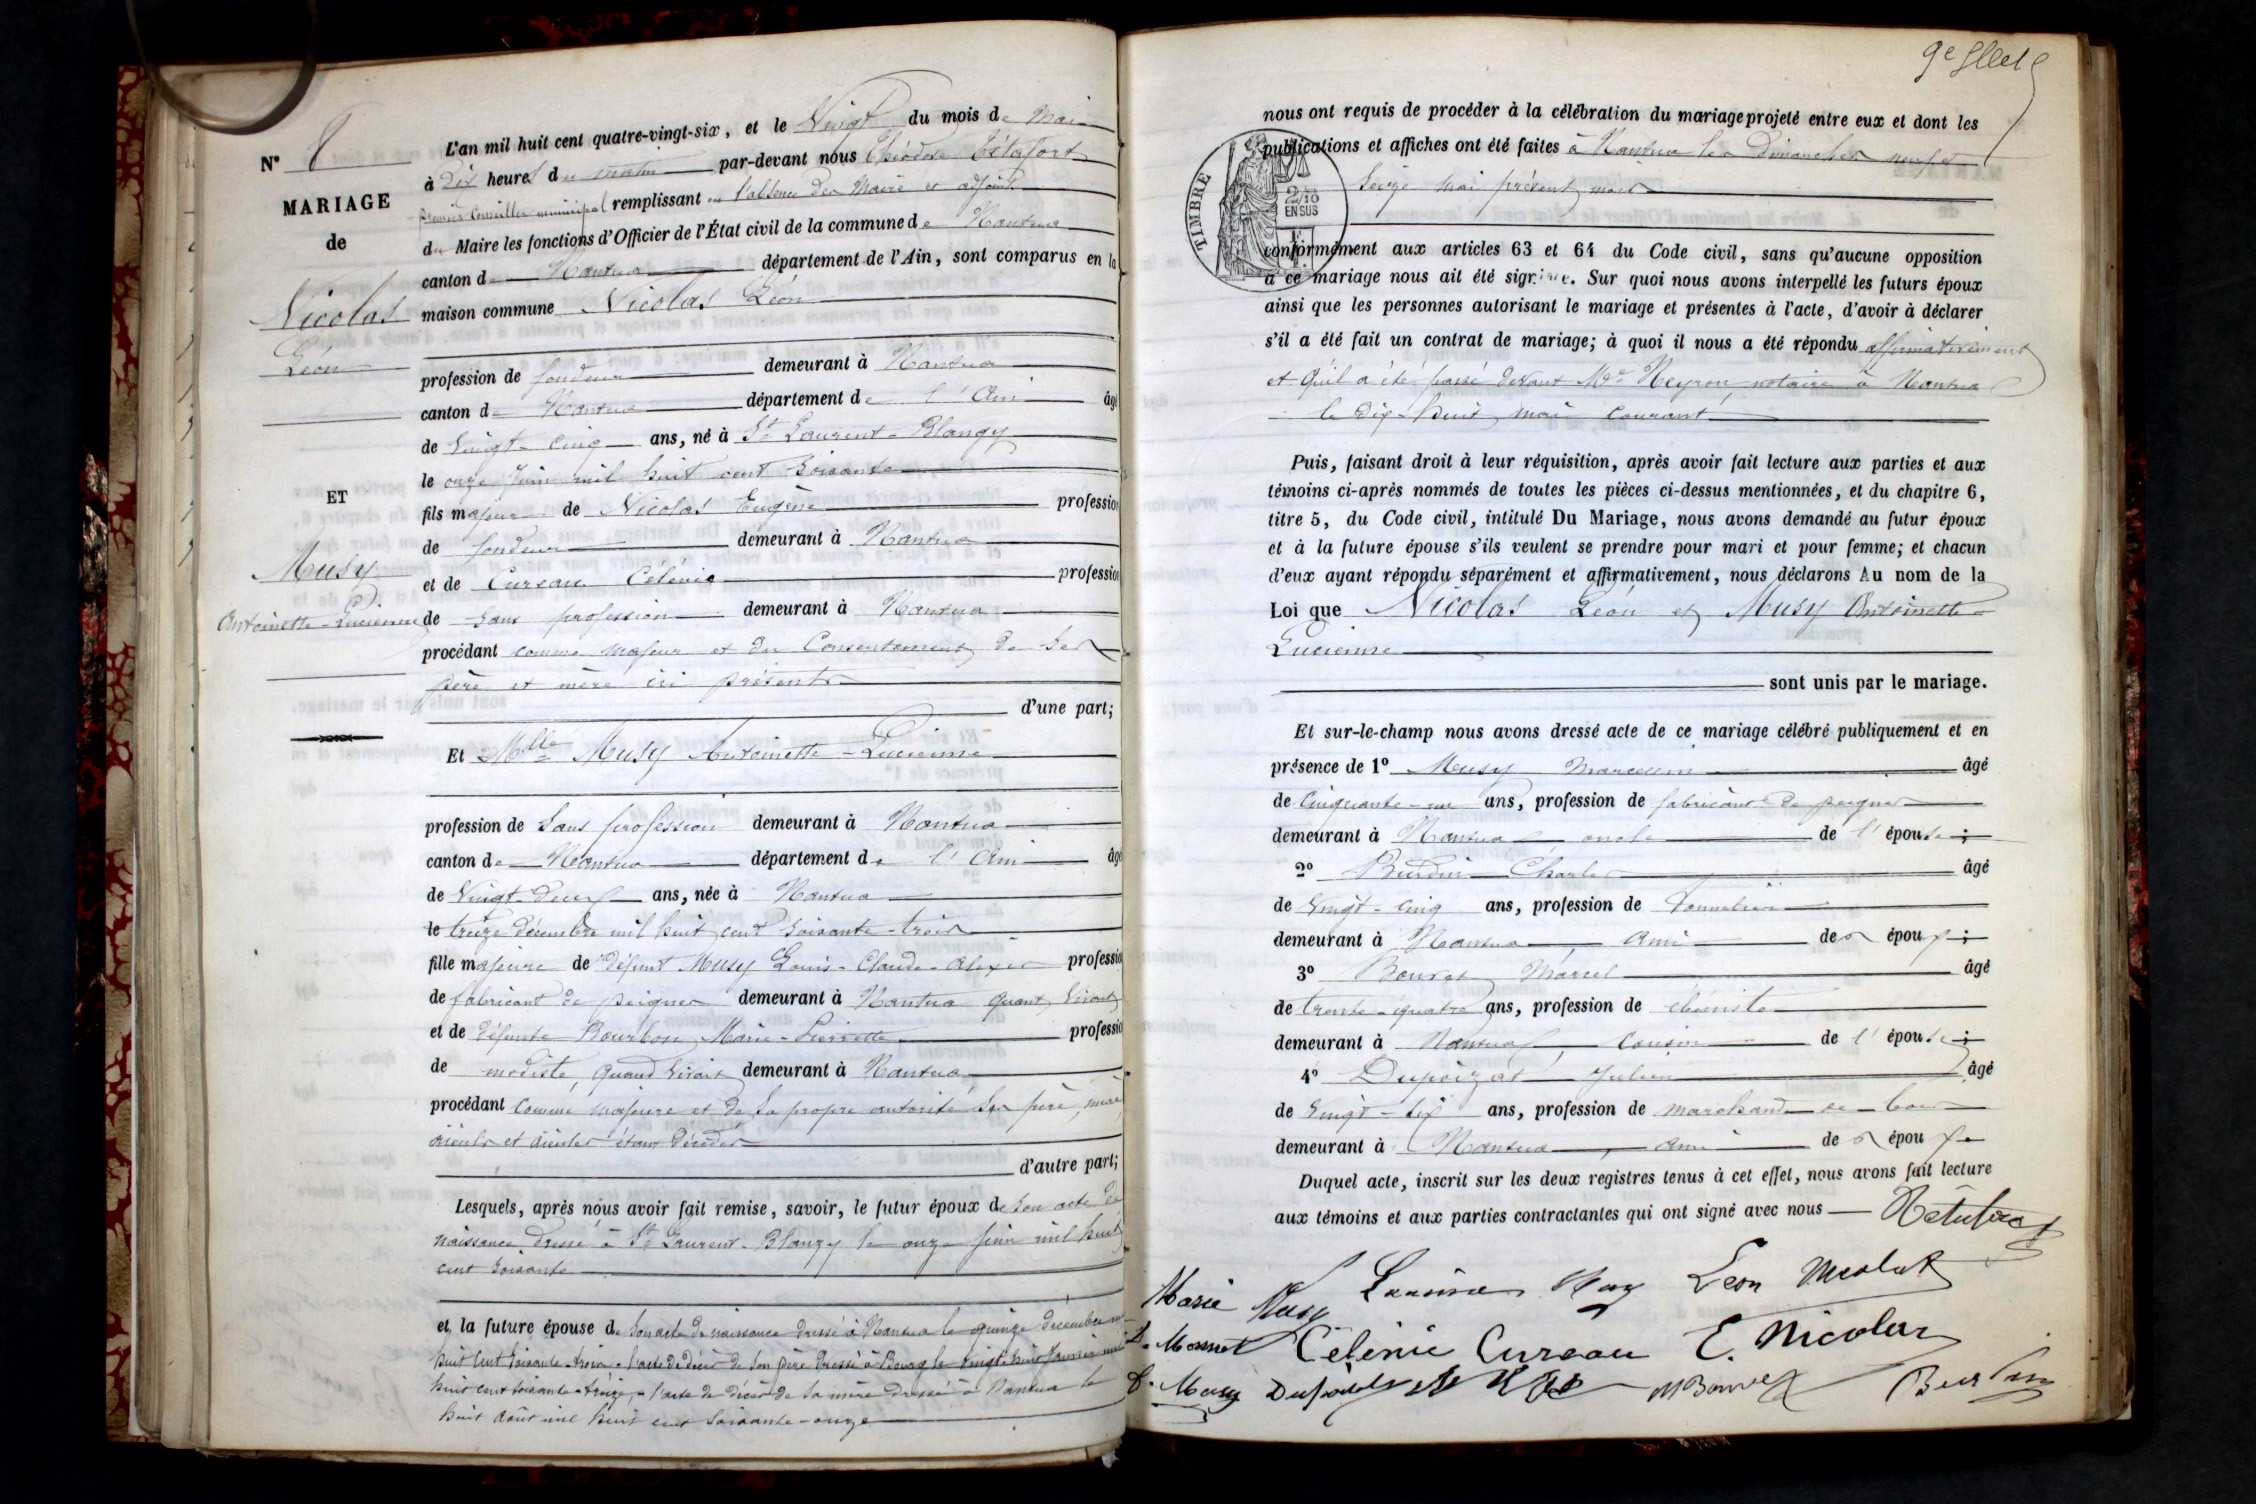 N° 8
MARIAGE
de
Nicolas
Léon
ET
Musy
Antoinette-Lucienne
L'an mil huit cent quatre-vingt-six, et le Vingt du mois de Mai
à Dix heures du matin par-devant nous Théodore
premier Conseiller municipal remplissant en l'absence des Maire et adjoint
du Maire les fonctions d'Officier de l'État civil de la commune de Nantua
canton de Nantua département de l'Ain, sont comparus en la
maison commune Nicolas Léon
profession de fondeur demeurant à Nantua
canton de Nantua département de l'Ain âgé
de Vingt-cinq ans, né à St Laurent-Blangy
le onze Juin mil huit cent soixante
fils majeur de Nicolas Eugène profession
de fondeur demeurant à Nantua
et de Cureau Célénie profession
de sans profession demeurant à Nantua
procédant comme majeur et du Consentement de ses
père et mère ici présents
d'une part;
Et Mlle Musy Antoinette-Lucienne
profession de Sans profession demeurant à Nantua
canton de Nantua département de l'Ain âgé
de Vingt-deux ans, née à Nantua
le treize décembre mil huit cent soixante-trois
fille majeure de défunt Musy Louis-Claude-Alexis profession
de fabricant de peignes demeurant à Nantua quant vivait
et de défunte Bourbon Marie-Pierrette profession
de modiste, quand vivait demeurant à Nantua
procédant comme majeure et de sa propre autorité ses père, mère
aïeuls et aïeules étant décédés
d'autre part;
Lesquels, après nous avoir fait remise, savoir, le futur époux de son acte de
naissance dressé à St Laurent-Blangy le onze juin mil huit
cent soixante
et la future épouse de son acte de naissance dressé à Nantua le quinze décembre mil
huit cent soixante-trois, l'acte de décès de son père dressé à Bourg le vingt-huit Janvier mil
huit cent soixante-treize, l'acte de décès de sa mère dressé à Nantua le
huit août mil huit cent soixante-onze
9e
nous ont requis de procéder à la célébration du mariage projeté entre eux et dont les
publications et affiches ont été faites à Nantua les Dimanches neuf et
Seize mai présent mois
TIMBRE
2/10
EN SUS
conformément aux articles 63 et 64 du Code civil, sans qu'aucune opposition
à ce mariage nous ait été signifiée. Sur quoi nous avons interpellé les futurs époux
ainsi que les personnes autorisant le mariage et présentes à l'acte, d'avoir à déclarer
s'il a été fait un contrat de mariage; à quoi il nous a été répondu affirmativement
et qu'il a été passé devant Me Neyron notaire à Nantua
le dix-huit mai courant
Puis, faisant droit à leur réquisition, après avoir fait lecture aux parties et aux
témoins ci-après nommés de toutes les pièces ci-dessus mentionnées, et du chapitre 6,
titre 5, du Code civil, intitulé Du Mariage, nous avons demandé au futur époux
et à la future épouse s'ils veulent se prendre pour mari et pour femme; et chacun
d'eux ayant répondu séparément et affirmativement, nous déclarons Au nom de la
Loi que Nicolas Léon et Musy Antoinette-
Lucienne
sont unis par le mariage.
Et sur-le-champ nous avons dressé acte de ce mariage célébré publiquement et en
présence de 1° Musy Marcellin âgé
de Cinquante-un ans, profession de fabricant de peignes
demeurant à Nantua oncle de l'épouse;
2° Burdin Charles âgé
de Vingt-cinq ans, profession de Tonnelier
demeurant à Nantua, ami des époux;
3° Bouvet Marcel âgé
de trente-quatre ans, profession de ébéniste
demeurant à Nantua Cousin de l'épouse;
4° Dupoizat Julien âgé
de Vingt-six ans, profession de marchand de bois
demeurant à Nantua, ami des époux
Duquel acte, inscrit sur les deux registres tenus à cet effet, nous avons fait lecture
aux témoins et aux parties contractantes qui ont signé avec nous
Marie Musy Lucienne Musy Léon Nicolas
Monnet Célénie Cureau E. Nicolas
Musy M Bouvet Burdin